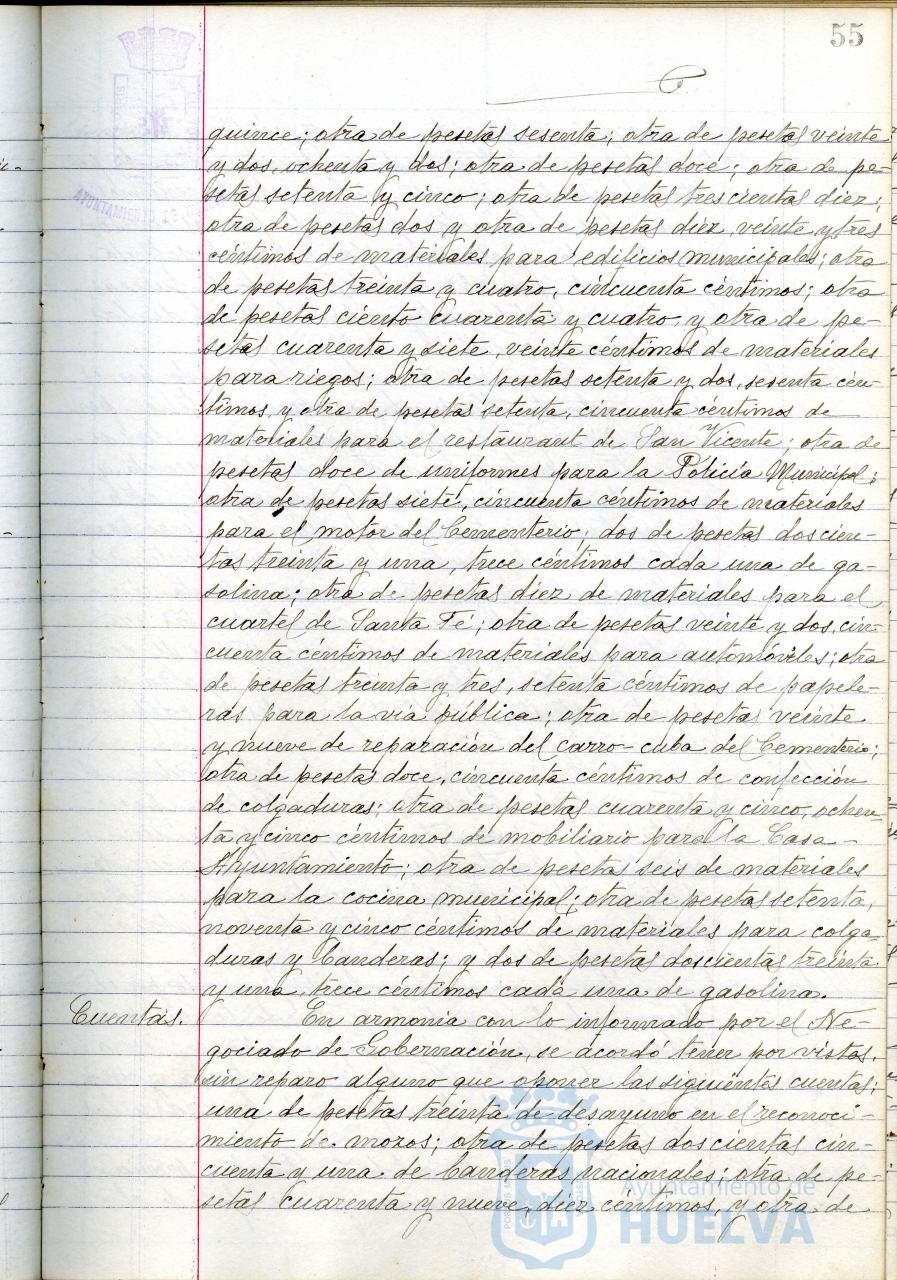 55
quince; otra de pesetas sesenta; otra de pesetas veinte
y dos, ochenta y dos; otra de pesetas doce; otra de pe-
setas setenta y cinco; otra de pesetas trescientas diez;
otra de pesetas dos y otra de pesetas diez, veinte y tres
céntimos de materiales para edificios municipales; otra
de pesetas treinta y cuatro, cincuenta céntimos; otra
de pesetas ciento cuarenta y cuatro, y otra de pe-
setas cuarenta y siete, veinte céntimos de materiales
para riegos; otra de pesetas setenta y dos, sesenta cén-
timos, y otra de pesetas setenta, cincuenta céntimos de
materiales para el restaurant de San Vicente; otra de
pesetas doce de uniformes para la Policía Municipal;
otra de pesetas siete, cincuenta céntimos de materiales
para el motor del Cementerio; dos de pesetas doscien-
tas treinta y una, trece céntimos cada una de ga-
solina; otra de pesetas diez de materiales para el
cuartel de Santa Fé; otra de pesetas veinte y dos, cin-
cuenta céntimos de materiales para automóviles; otra
de pesetas treinta y tres, setenta céntimos de papele-
ras para la vía pública; otra de pesetas veinte
y nueve de reparación del carro-cuba del Cementerio;
otra de pesetas doce, cincuenta céntimos de confección
de colgaduras; otra de pesetas cuarenta y cinco, ochen-
ta y cinco céntimos de mobiliario para la Casa-
Ayuntamiento; otra de pesetas seis de materiales
para la cocina municipal; otra de pesetas setenta,
noventa y cinco céntimos de materiales para colga-
duras y banderas; y dos de pesetas doscientas treinta
y una, trece céntimos cada una de gasolina.
Cuentas. En armonía con lo informado por el Ne-
gociado de Gobernación, se acordó tener por vistas,
sin reparo alguno que oponer las siguientes cuentas;
una de pesetas treinta de desayuno en el reconoci-
miento de mozos; otra de pesetas doscientas cin-
cuenta y una de banderas nacionales; otra de pe-
setas cuarenta y nueve, diez céntimos, y otra de
AYUNTAMIENTO DE
Ayuntamiento de
HUELVA